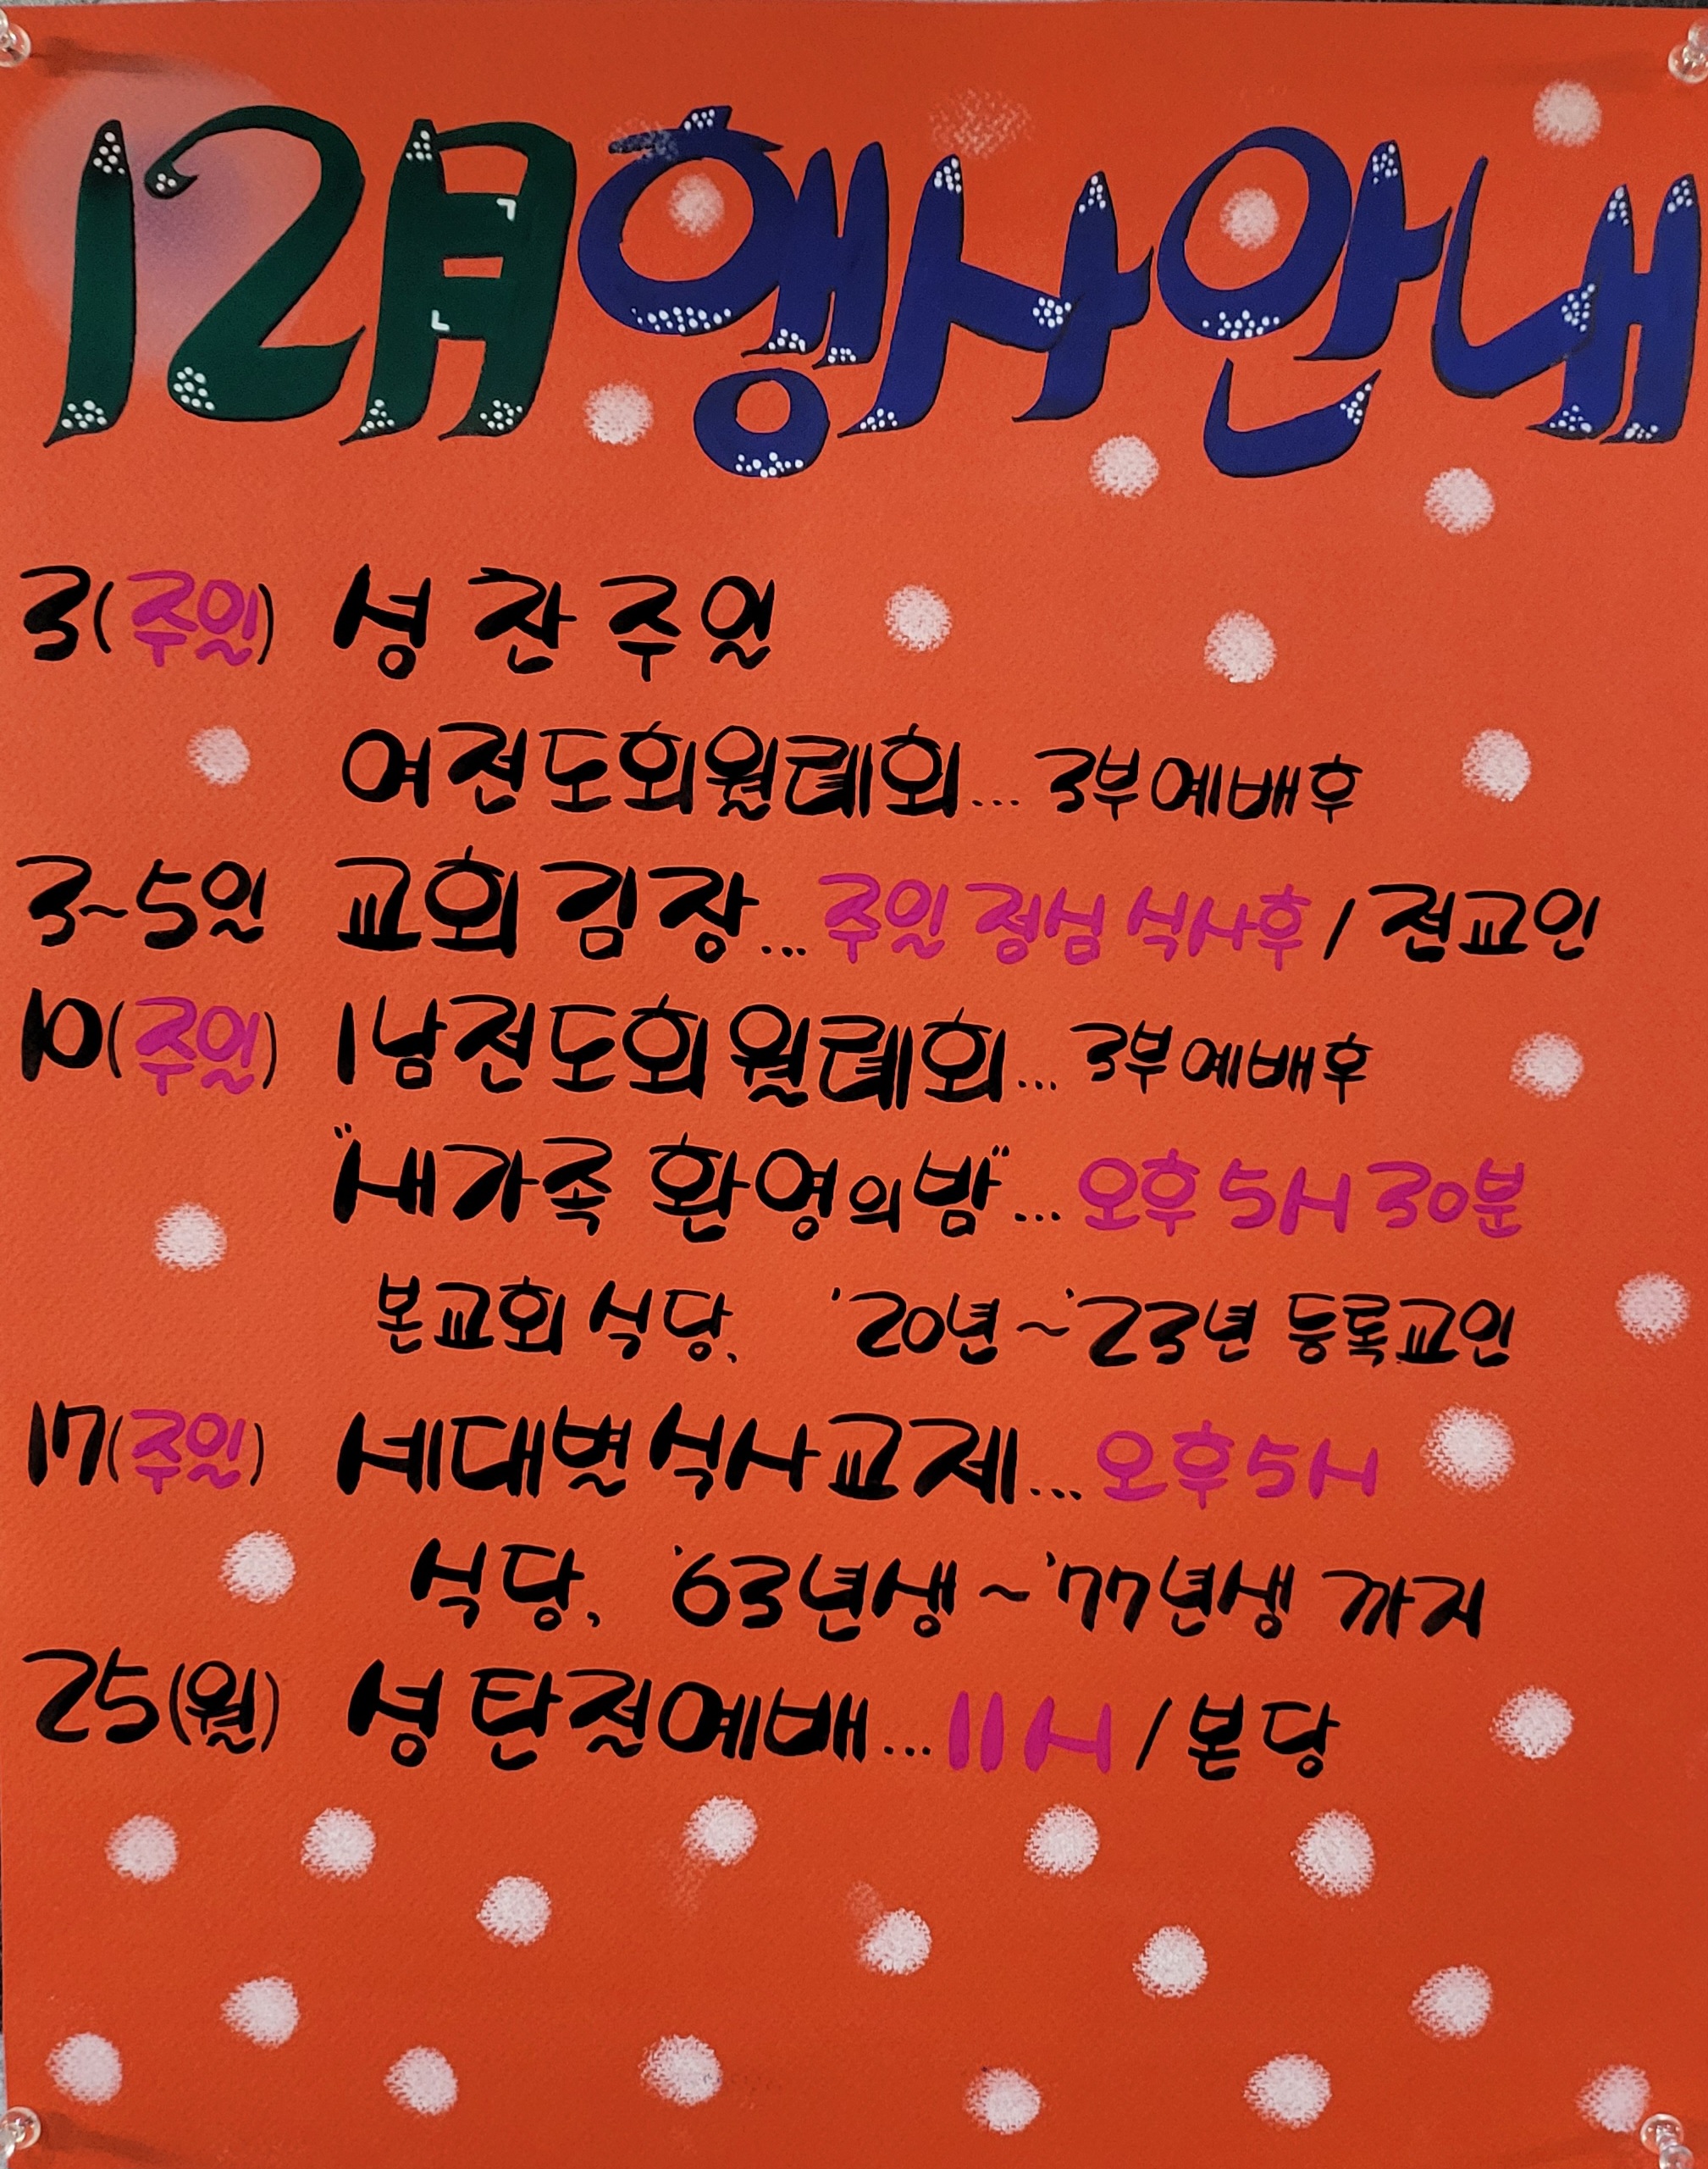 12月행사안내
3(주일) 성찬주일
여전도회월례회... 3부예배후
3~5일 교회김장... 주일 점심 식사후 / 전교인
10(주일) 1남전도회월례회... 3부예배후
"새가족 환영의밤"... 오후 5시 30분
본교회 식당, '20년~'23년 등록교인
17(주일) 세대별식사교제... 오후5시
식당, '63년생~'77년생 까지
25(월) 성탄절예배... 11시 / 본당